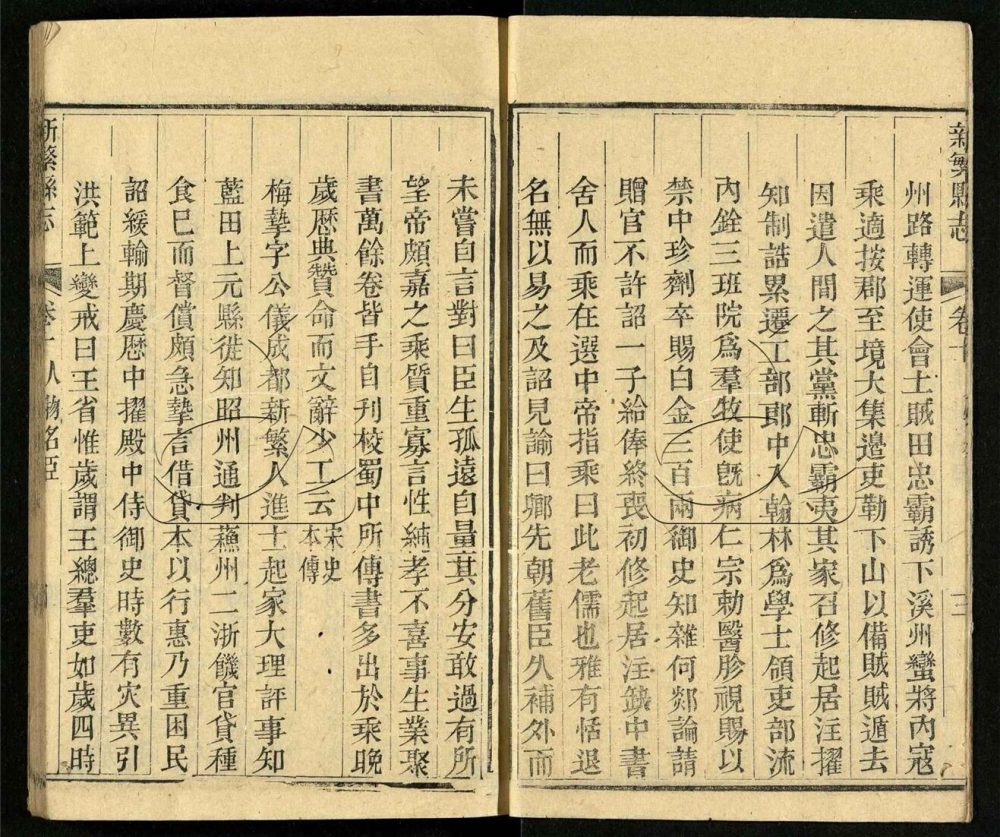 新繁縣志
卷十
三
州路轉運使會土賊田忠霸誘下溪州蠻將內寇
乘適按郡至境大集邊吏勒下山以備賊賊遁去
因遣人間之其黨斬忠霸夷其家召修起居注擢
知制誥累遷工部郎中入翰林為學士領吏部流
內銓三班院為羣牧使旣病仁宗勅醫胗視賜以
禁中珍劑卒賜白金三百兩御史知雜何郯論請
贈官不許詔一子給俸終喪初修起居注缺中書
舍人而乘在選中帝指乘曰此老儒也雅有恬退
名無以易之及詔見諭曰卿先朝舊臣久補外而
未嘗自言對曰臣生孤遠自量其分安敢過有所
望帝頗嘉之乘質重寡言性純孝不喜事生業聚
書萬餘卷皆手自刊校蜀中所傳書多出於乘晚
歲歷典贊命而文辭少工云宋史本傳
梅摯字公儀成都新繁人進士起家大理評事知
藍田上元縣徙知昭州通判蘇州二浙饑官貸種
食巳而督償頗急摯言借貸本以行惠乃重困民
詔緩輸期慶歷中擢殿中侍御史時數有災異引
洪範上變戒曰王省惟歲謂王總羣吏如歲四時
新繁縣志
卷十
人物名臣